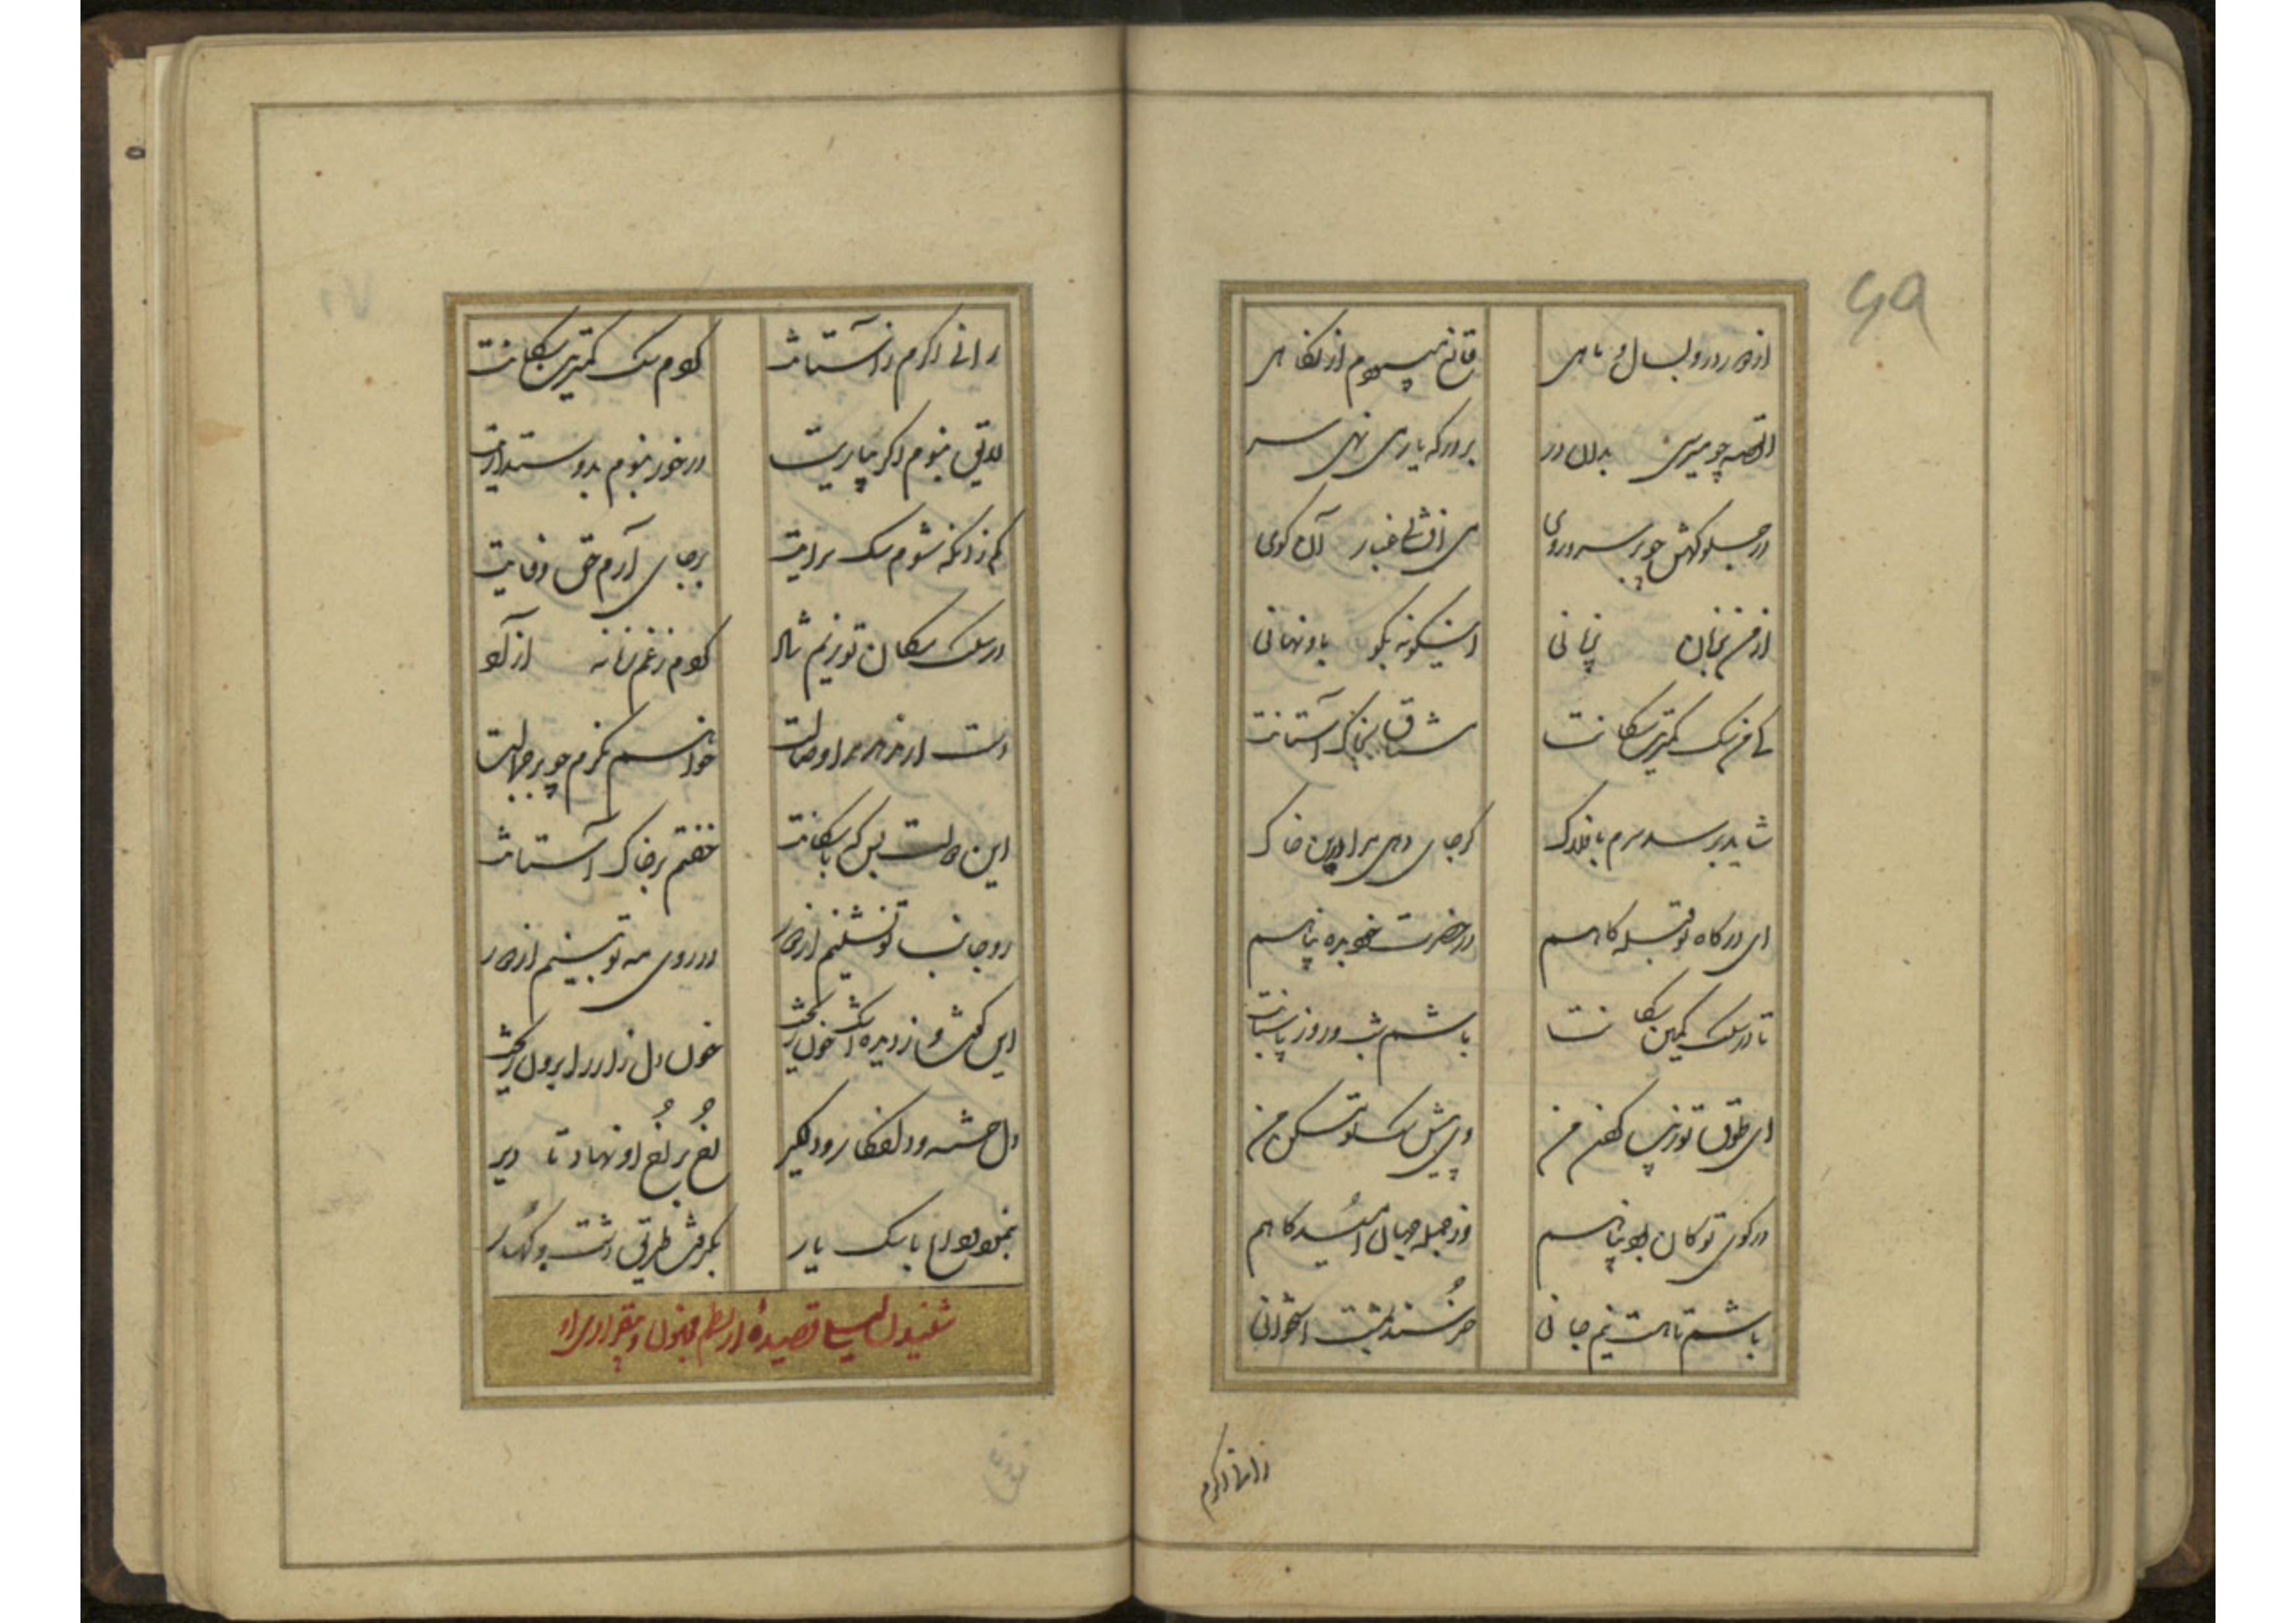 ۶۹
از دور درو بسال و ماهی
قانع میبودم از نگاهی
القصه چو میرسی بدان در
بر درگه یار می نهی سر
در جلوه گهش چو بر سر و روی
می افشانی غبار آن کوی
از من بزبان بی زبانی
اینگونه بگو باو نهانی
کای من سگ کمترین سگانت
مشتاق بخاک آستانت
شاید برسد سرم بافلاک
گر جای دهی مرا درین خاک
ای درگاه تو قبله گاهم
در حضرت خود بده پناهم
تا در سلک کمین سگانت
باشم شب و روز پاسبانت
ای طوق تو زیب گردن من
وی پیش سگ تو مسکن من
در کوی تو کان بود پناهم
وز جمله جهان امیدگاهم
باشم تا هست نیم جانی
خرسند بمشت استخوانی
رانی اگرم ز آستانت
رانی اگرم ز آستانت
گردم سگ کمترین سگانت
لایق نبوم اگر بیاریت
در خور نبوم بدوستداریت
کم زانکه شوم سگ سرایت
بر جای آرم حق وفایت
در سلک سگان تو زنم شاد
گردم ز غم زمانه آزاد
دست ار ندهد مرا وصالت
خواهم نگرم چو بر جمالت
این دولت بس که با سگانت
خفتم بر خاک آستانت
رو جانب تو نشینم از دور
در روی مه تو بینم از دور
این گفت و ز دیده اشک خون ریخت
خون دل زار را برون ریخت
دل خسته و دلفکار و دلگیر
رخ بر رخ او نهاد تا دیر
بنمود وداع با سگ یار
بگرفت طریق دشت و کهسار
شنیدن لیلی قصیده از نظم مجنون و بیقراری او